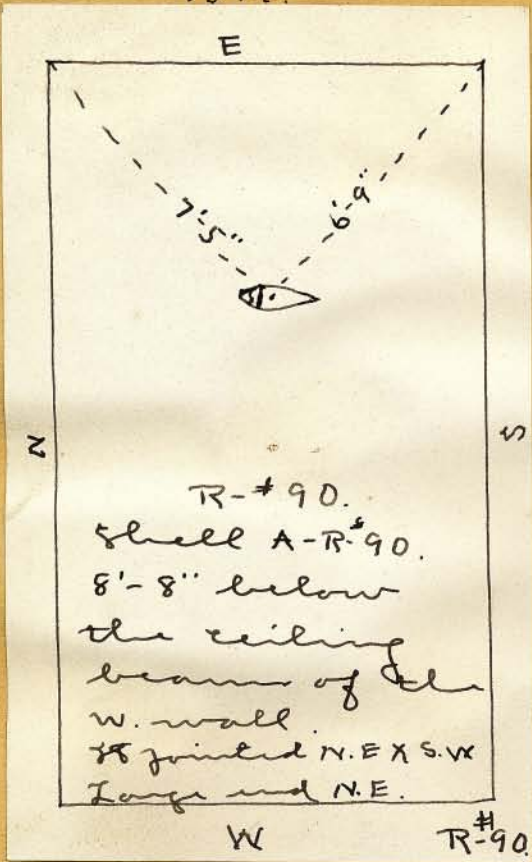 E
7'-5"
6'-9"
N
S
R-#90.
Shell A-R-#90.
8'-8" below
the ceiling
beam of the
w. wall
It pointed N.E X S.W
Large end N.E.
W
R-#90